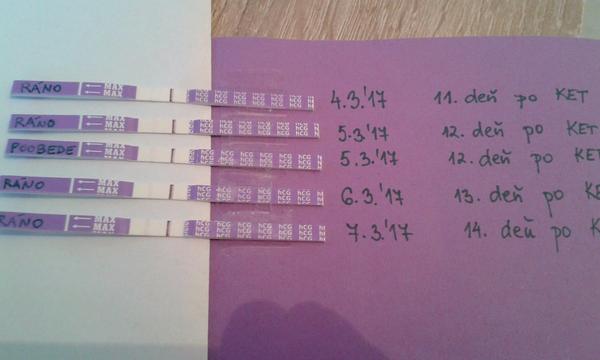 RÁNO MAX MAX hCG hCG hCG hCG hCG hCG 4.3.'17 11. deň po KET
RÁNO MAX MAX hCG hCG hCG hCG hCG hCG 5.3.'17 12. deň po KET
POOBEDE MAX MAX hCG hCG hCG hCG hCG hCG 5.3.'17 12. deň po KET
RÁNO MAX MAX hCG hCG hCG hCG hCG hCG 6.3.'17 13. deň po
RÁNO MAX MAX hCG hCG hCG hCG hCG hCG 7.3.'17 14. deň po